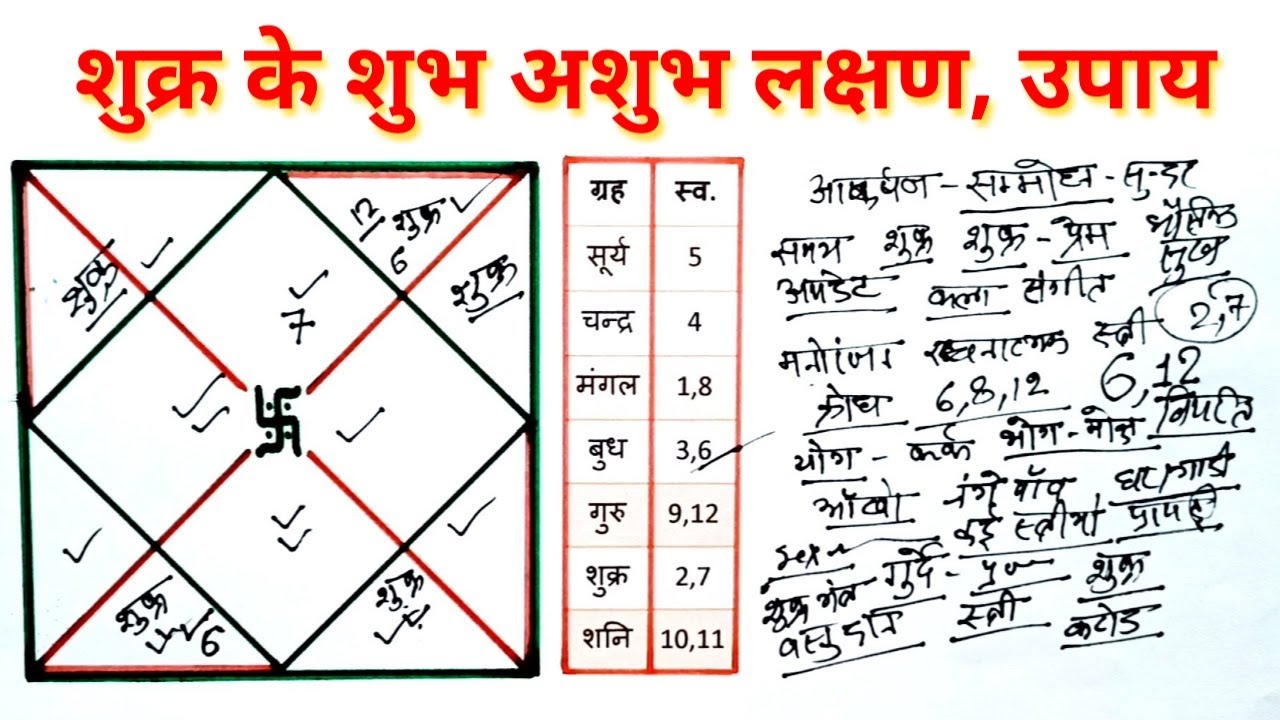 शुक्र के शुभ अशुभ लक्षण, उपाय
शुक्र
12 शुक्र
6
शुक्र
7
शुक्र
6
शुक्र
ग्रह स्व.
सूर्य 5
चन्द्र 4
मंगल 1,8
बुध 3,6
गुरु 9,12
शुक्र 2,7
शनि 10,11
सम्मोहन - सुन्दर
शुक्र शुक्र - प्रेम भौतिक
अपडेट कला संगीत सुख
स्त्री 2,7
क्रोध 6,8,12 6,12
योग - कर्क भोग - मोक्ष विपरित
आँखो नंगे पाँव घर/गाडी
कई स्त्रीयो
sex
शुक्र गुर्दे - शुक्र
स्त्री